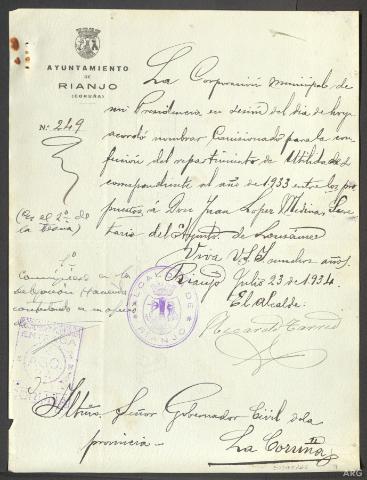 AYUNTAMIENTO
DE
RIANJO
(CORUÑA)
N.º 249
La Corporación municipal de
mi Presidencia en sesión del día de hoy
acordó nombrar Comisionado para la con-
fección del repartimiento de Utilidades
correspondiente al año de 1933 entre los pro-
puestos, á Don Juan Lopez Medina, Secre-
tario del Aynto. de Lousame
Viva V.S.I. muchos años.
Rianjo Julio 23 de 1934
El Alcalde:
(Es el 2º de
la terna)
ALCALDIA DE
RIANJO
en la
Iltmo. Señor Gobernador Civil de la
provincia
La Coruña
ARG